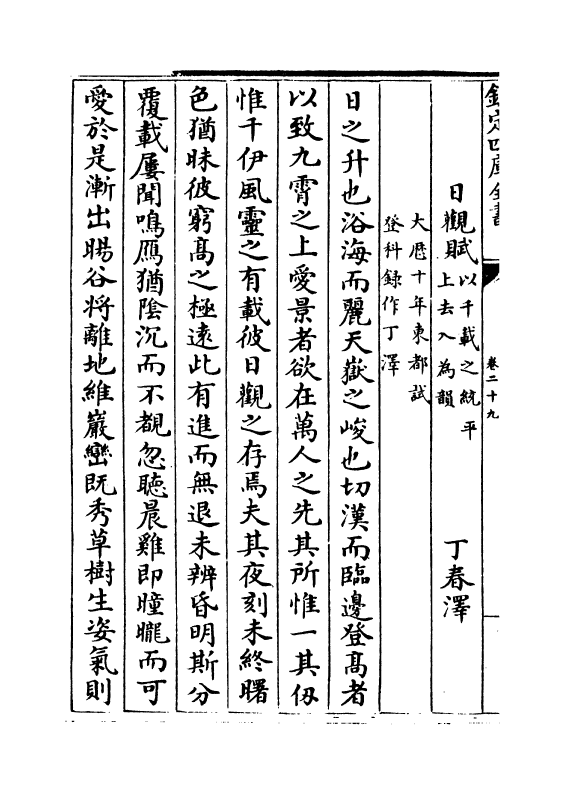 欽定四庫全書
卷二十九
日觀賦
以千載之統平
上去入為韻
丁春澤
大厯十年東都試
登科録作丁澤
日之升也浴海而麗天嶽之峻也切漢而臨邊登髙者
以致九霄之上愛景者欲在萬人之先其所惟一其仭
惟千伊風靈之有載彼日觀之存焉夫其夜刻未終曙
色猶昧彼窮髙之極遠此有進而無退未辨昏明斯分
覆載屢聞鳴鴈猶陰沉而不覩忽聽晨雞即曈曨而可
愛於是漸出暘谷將離地維巖巒既秀草樹生姿氣則